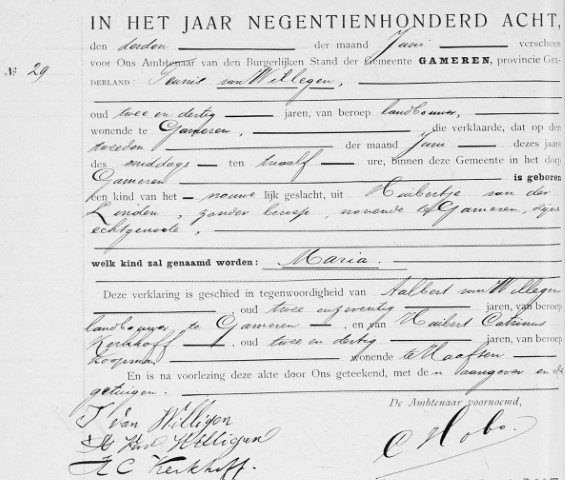 IN HET JAAR NEGENTIENHONDERD ACHT,
den derden der maand Juni verscheen
voor Ons Ambtenaar van den Burgerlijken Stand der Gemeente GAMEREN, provincie GEL-
No 29
DERLAND: Teunis van Willegen,
oud twee en dertig jaren, van beroep landbouwer,
wonende te Gameren, die verklaarde, dat op den
tweeden der maand Juni dezes jaars
des middags ten twaalf ure, binnen deze Gemeente in het dorp
Gameren is geboren
een kind van het vrouwelijk geslacht, uit Huibertje van der
Linden, zonder beroep, wonende te Gameren, zijne
echtgenoote,
welk kind zal genaamd worden: Maria.
Deze verklaring is geschied in tegenwoordigheid van Aalbert van Willegen
oud twee en zeventig jaren, van beroep
landbouwer te Gameren, en van Huibert Catrinus
Kerkhoff oud twee en dertig jaren, van beroep
koopman wonende te Haaften
En is na voorlezing deze akte door Ons geteekend, met den aangever en de
getuigen.
De Ambtenaar voornoemd,
T van Willigen
van Willigen
H C Kerkhoff.
C Hobo.